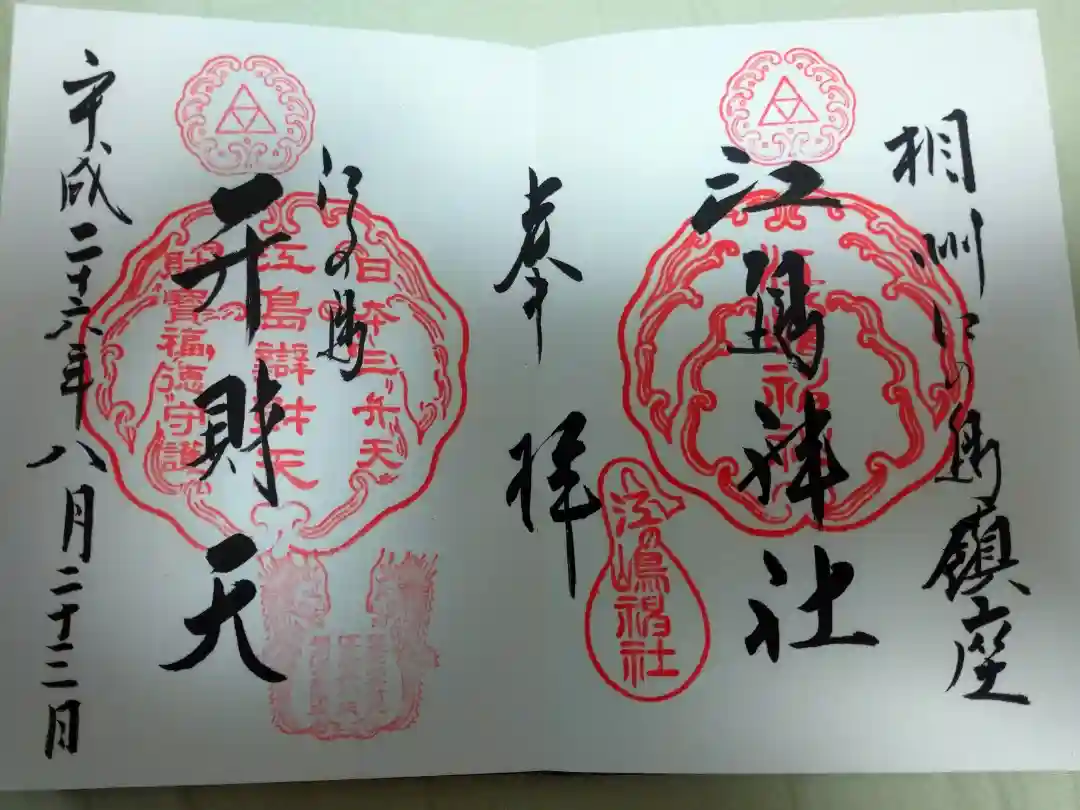 相州江の島鎮座
江島神社
奉拝
江の嶋神社
江の島
弁財天
日本三弁天
江島辯財天
財寶福徳守護
平成二十六年八月二十二日